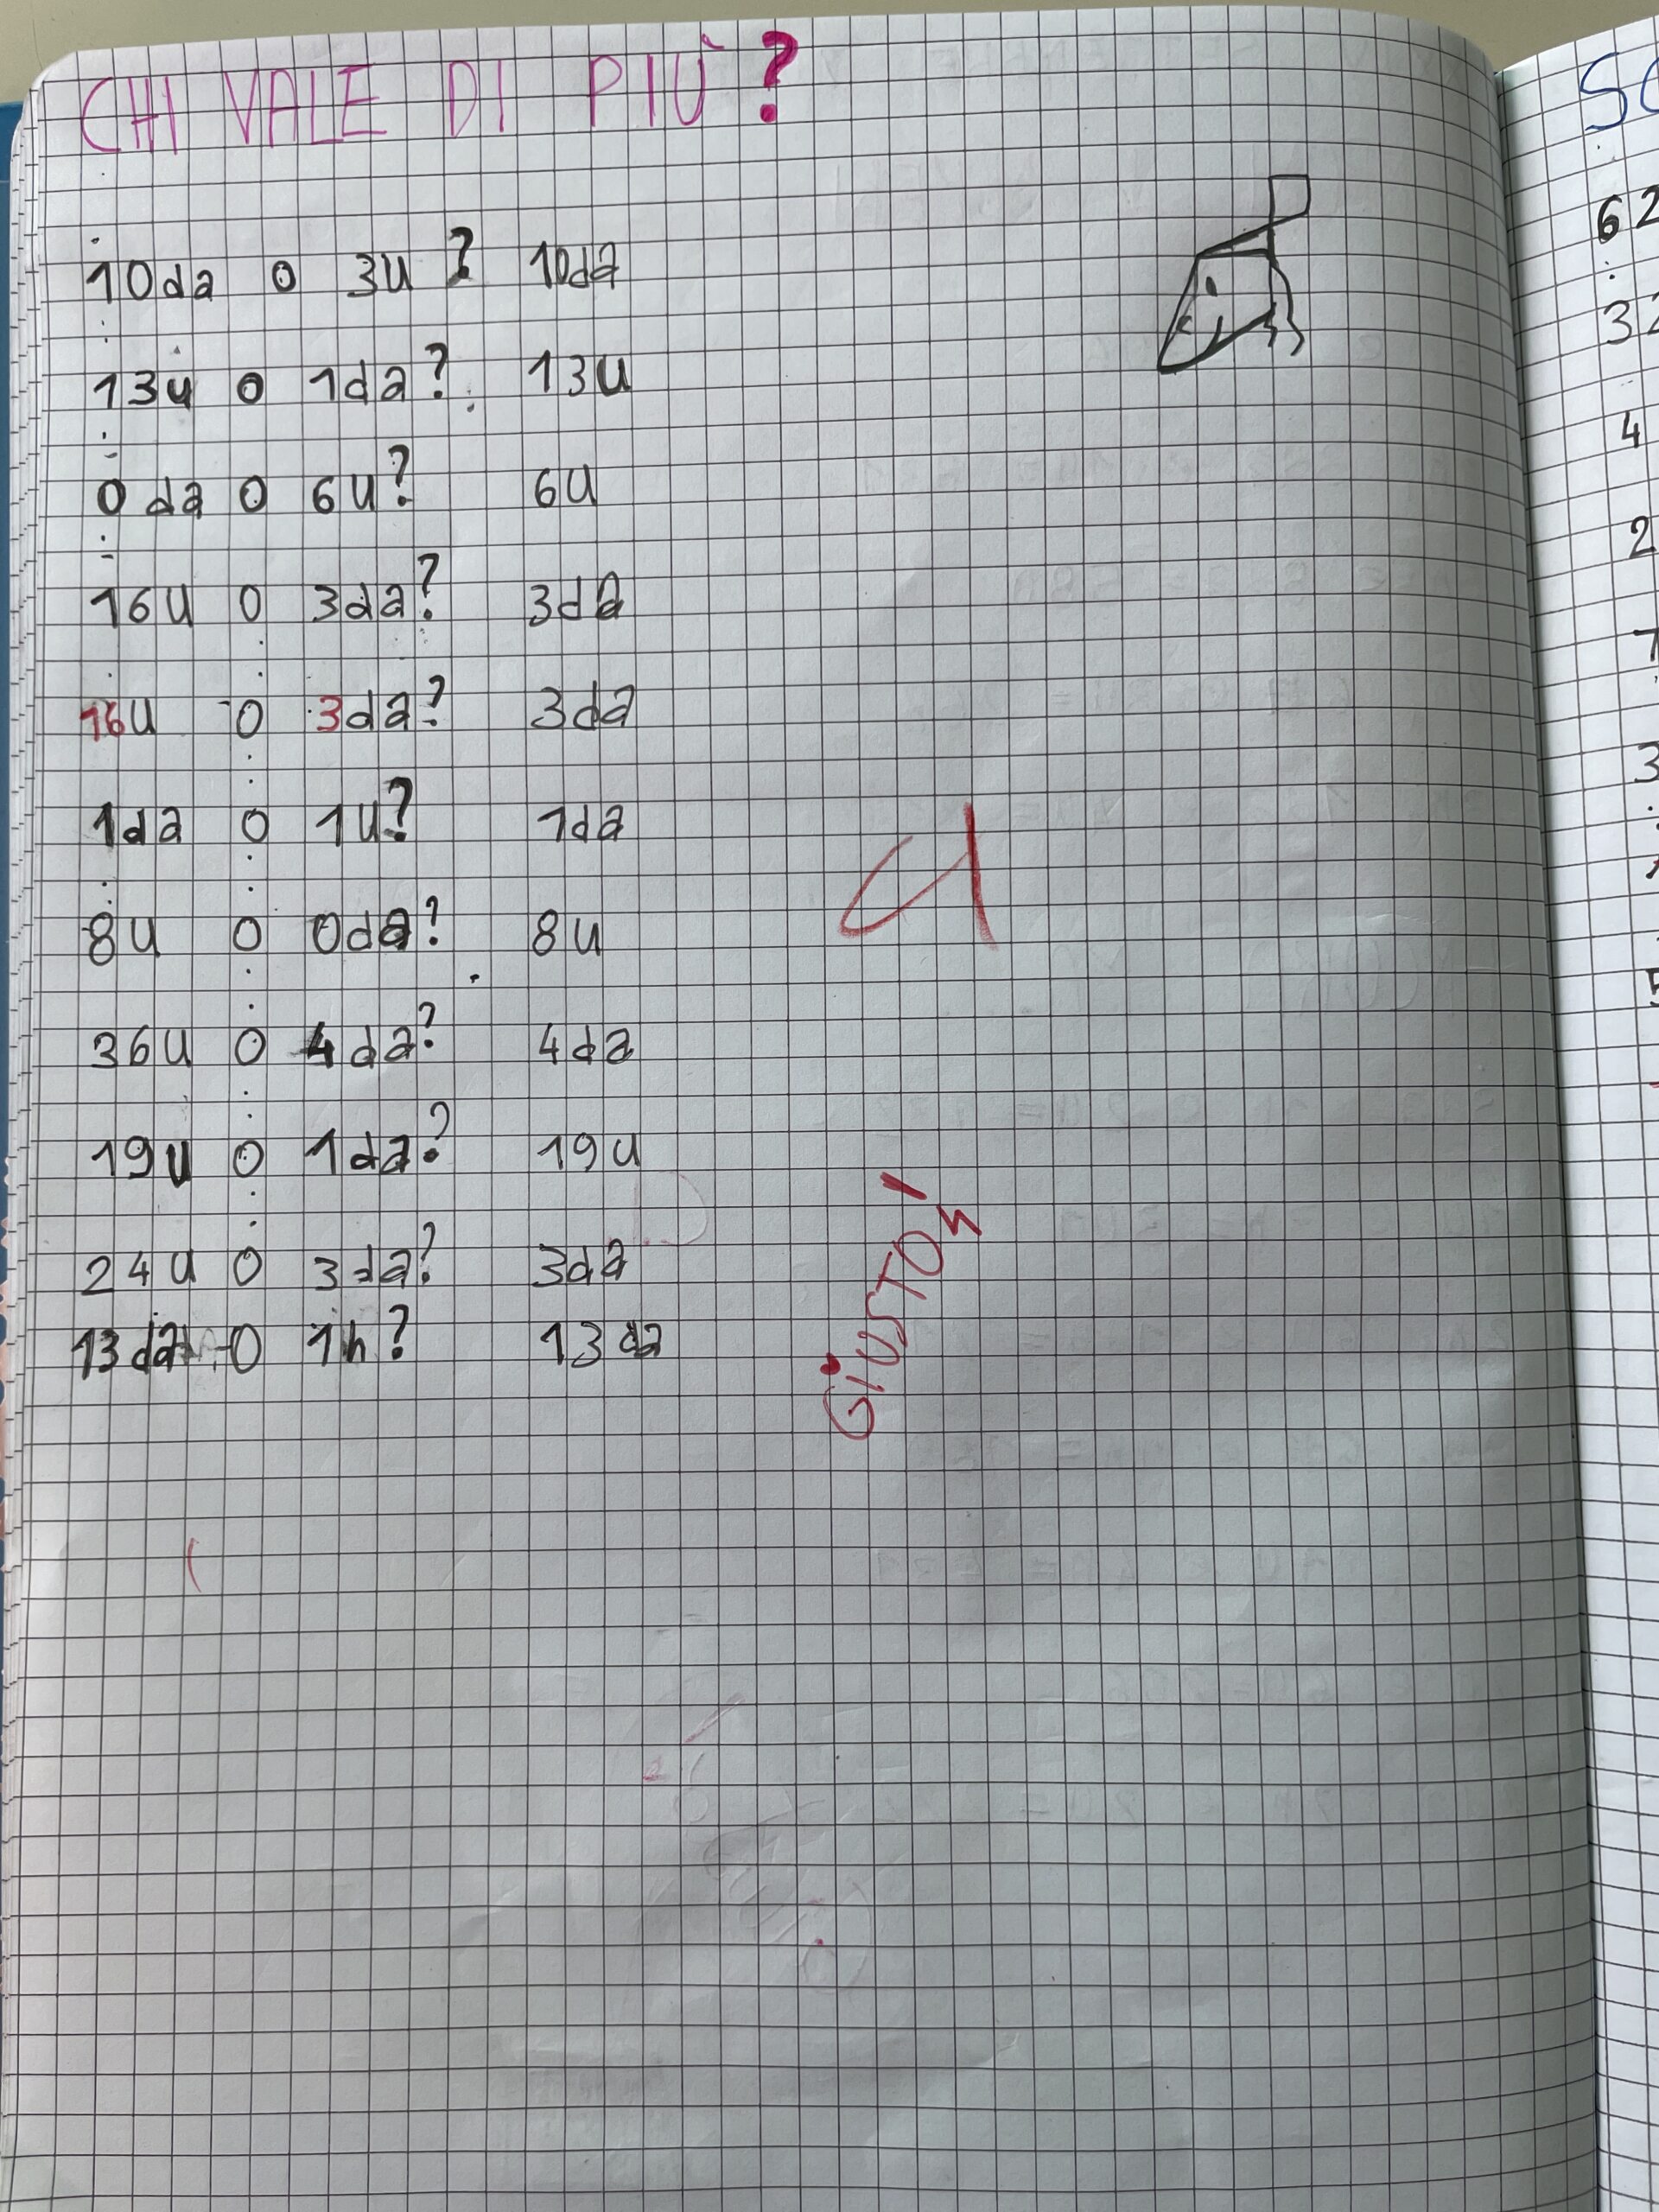 CHI VALE DI PIÙ?
10da o 3u? 10da
13u o 1da? 13u
0da o 6u? 6u
16u o 3da? 3da
16u o 3da? 3da
1da o 1u? 1da
8u o 0da? 8u
36u o 4da? 4da
19u o 1da? 19u
24u o 3da? 3da
13da o 1h? 13da
GiUSTO!
SC
62
32
4
2
7
3
5